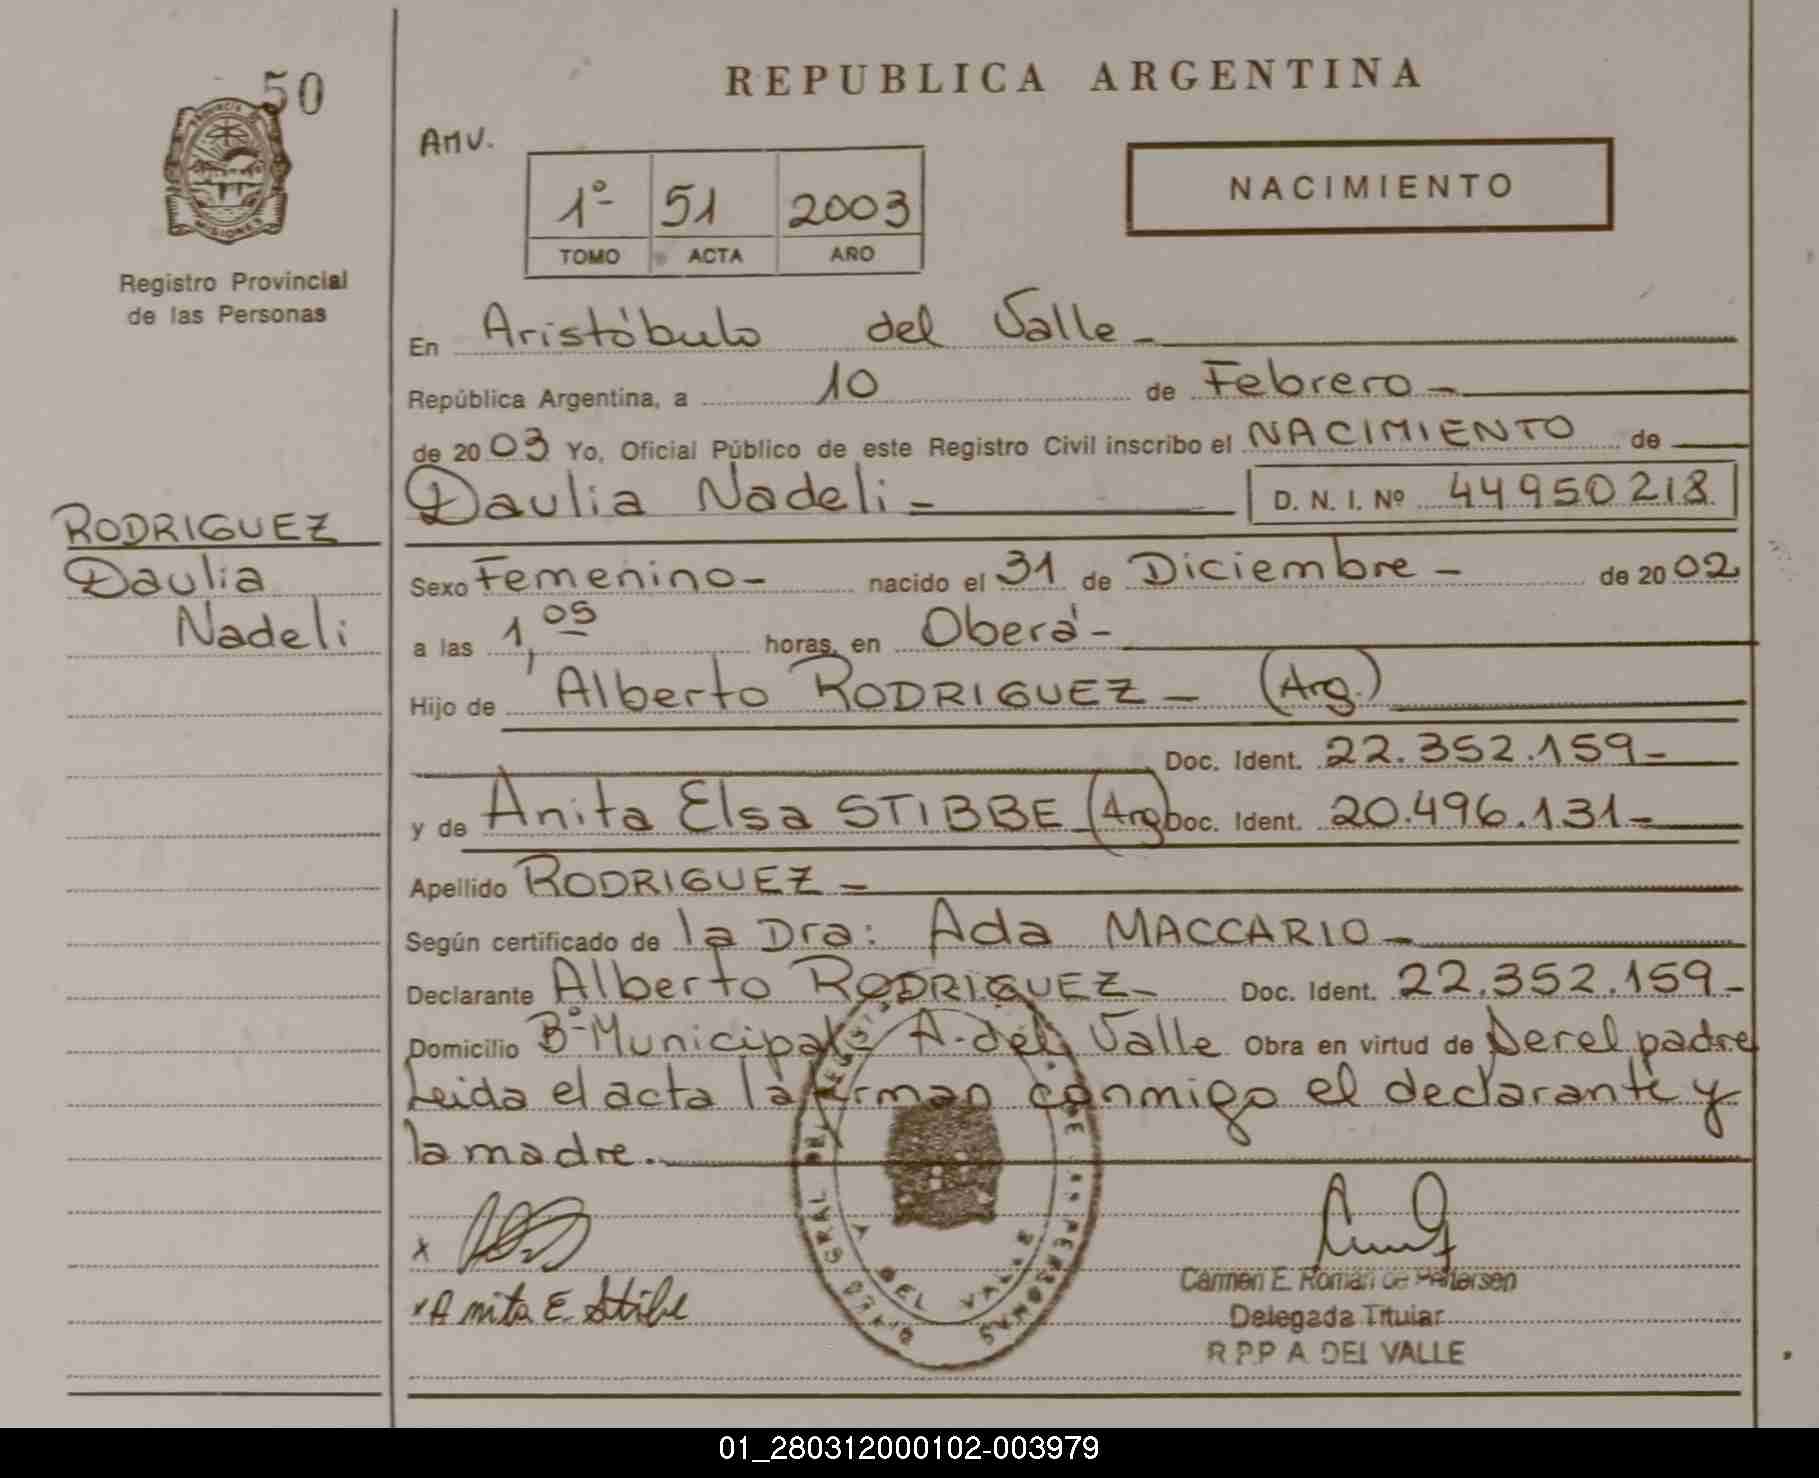 50
PROVINCIA DE
MISIONES
Registro Provincial
de las Personas
RODRIGUEZ
Daulia
Nadeli
REPUBLICA ARGENTINA
AMV.
1º 51 2003
TOMO ACTA AÑO
NACIMIENTO
En Aristóbulo del Valle
República Argentina, a 10 de Febrero
de 2003 Yo, Oficial Público de este Registro Civil inscribo el NACIMIENTO de
Daulia Nadeli D. N. I. Nº 44950218
Sexo Femenino nacido el 31 de Diciembre de 2002
a las 1,05 horas, en Oberá
Hijo de Alberto RODRIGUEZ (Arg.)
Doc. Ident. 22.352.159
y de Anita Elsa STIBBE (Arg) Doc. Ident. 20.496.131
Apellido RODRIGUEZ
Según certificado de la Dra: Ada MACCARIO
Declarante Alberto RODRIGUEZ Doc. Ident. 22.352.159
Domicilio Bº Municipal A. del Valle Obra en virtud de Ser el padre
Leida el acta la firman conmigo el declarante y
la madre.
x
x Anita E. Stibe
GRAL DEL
DE PERSONAS
A DEL VALLE
Carmen E. Román de
Delegada Titular
R.P.P A DEL VALLE
01_280312000102-003979